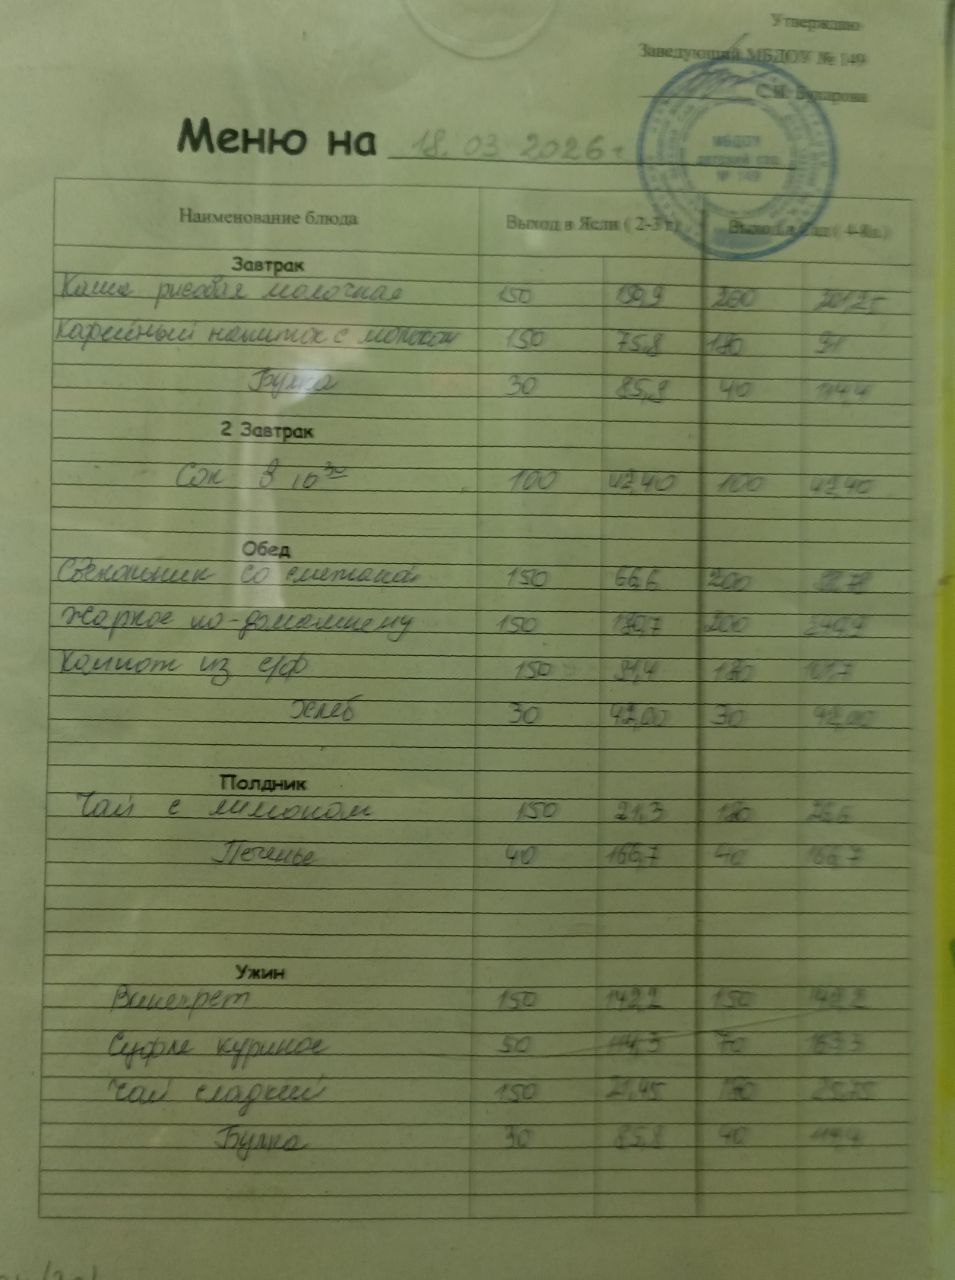 Утверждаю
Заведующий МБДОУ № 149
Меню на 18.03 2026 г
МБДОУ
детский сад
№ 149
Наименование блюда Выход в Ясли ( 2-3 г) Выход в Сад ( 4-8л.)
Завтрак
Каша рисовая молочная 150 200
Кофейный напиток с молоком 150 75,8 180 91
Булка 30 85,8 40 114,4
2 Завтрак
Сок В 10 30 100 42,40 100 42,40
Обед
Свекольник со сметаной 150 66,6 200
Жаркое по-домашнему 150 200
Компот из с/ф 150 180
Хлеб 30 42,00 30 42,00
Полдник
Чай с лимоном 150 21,3 180
Печенье 40 166,7 40 166,7
Ужин
Винегрет 150 142,2 150 142,2
Суфле куриное 50 114,3 70
Чай сладкий 150 21,45 180 25,75
Булка 30 85,8 40 114,4